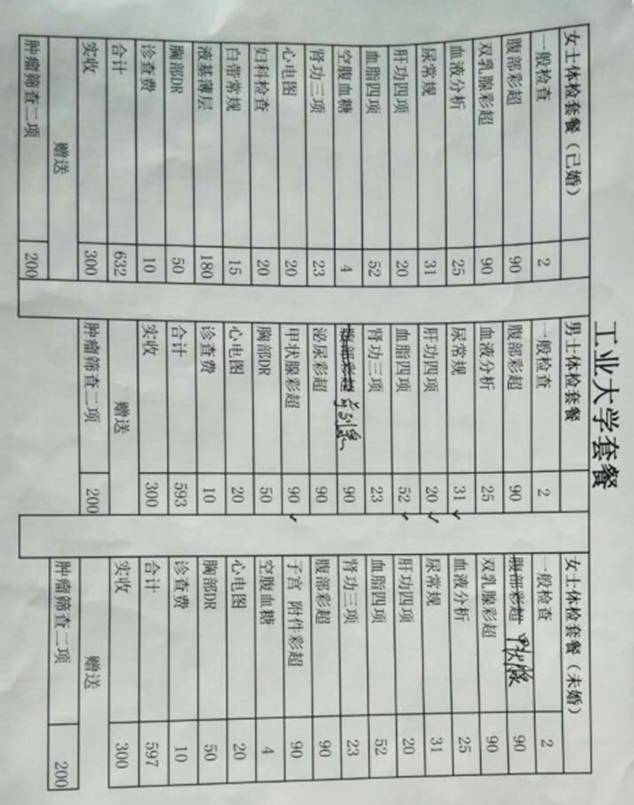 工业大学套餐
女士体检套餐（已婚）
一般检查 2
腹部彩超 90
双乳腺彩超 90
血液分析 25
尿常规 31
肝功四项 20
血脂四项 52
空腹血糖 4
肾功三项 23
心电图 20
妇科检查 20
白带常规 15
液基薄层 180
胸部DR 50
诊查费 10
合计 632
实收 300
赠送
肿瘤筛查二项 200
男士体检套餐
一般检查 2
腹部彩超 90
血液分析 25
尿常规 31 ✓
肝功四项 20 ✓
血脂四项 52 ✓
肾功三项 23
腹部彩超 前列腺 90
泌尿彩超 90
甲状腺彩超 90 ✓
胸部DR 50
心电图 20
诊查费 10
合计 593
实收 300
赠送
肿瘤筛查二项 200
女士体检套餐（未婚）
一般检查 2
腹部彩超 甲状腺 90
双乳腺彩超 90
血液分析 25
尿常规 31
肝功四项 20
血脂四项 52
肾功三项 23
腹部彩超 90
子宫 附件彩超 90
空腹血糖 4
心电图 20
胸部DR 50
诊查费 10
合计 597
实收 300
赠送
肿瘤筛查二项 200